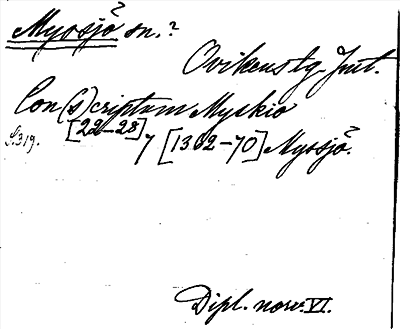 Myssjö? sn.?
Ovikens tg. Jmt.
Con(s)criptum Myskio
S. 319. [22–28]/7 [1362–70] Myssjö?
Dipl. norv. VI.